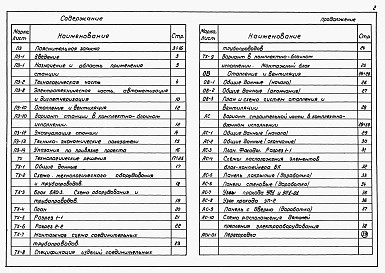 2
Содержание
продолжение
Марка, лист
Наименование
Стр.
ПЗ Пояснительная записка 3÷16
ПЗ-1 Введение 3
ПЗ-1 Назначение и область применения станции 3
ПЗ-2 Технологическая часть 4
ПЗ-8 Электротехническая часть, автоматизация и диспетчеризация 10
ПЗ-10 Отопление и вентиляция 12
ПЗ-10 Вариант станции в комплектно-блочном исполнении
ПЗ-12 Эксплуатация станции
ПЗ-13 Технико-экономические показатели 15
ПЗ-14 Указания по привязке проекта 16
ТХ Технологические решения
ТХ-1 Общие данные 17
ТХ-2 Схема технологического оборудования и трубопроводов 18
ТХ-3 Схема оборудования и трубопроводов 19
ТХ-4 План 20
ТХ-5 Разрез 1-1 21
ТХ-6 Разрез 2-2 22
ТХ-7 Монтажная схема соединительных трубопроводов 23
ТХ-8 Спецификация изделий соединительных
Марка, лист
Наименование
Стр.
трубопроводов 24
Вариант в комплектно-блочном исполнении. Монтажный блок 25
ОВ Отопление и вентиляция
ОВ-1 Общие данные (начало) 26
ОВ-2 Общие данные (окончание) 27
ОВ-3 План и схемы систем отопления и вентиляции 28
АС Вариант строительной части в комплектно-блочном исполнении
АС-1 Общие данные (начало) 29
АС-2 Общие данные (окончание) 30
АС-3 План. Фасады. Разрез 1-1 31
АС-4 Схемы расположения элементов блок-контейнера 32
АС-5 Панель покрытия (доработка) 33
АС-6 Панели стеновые (доработка) 34
АС-7 35
АС-8 36
АС-9 Панель с дверью (доработка) 37
АС-10 Схема расположения деталей крепления электрооборудования 38
Перегородка